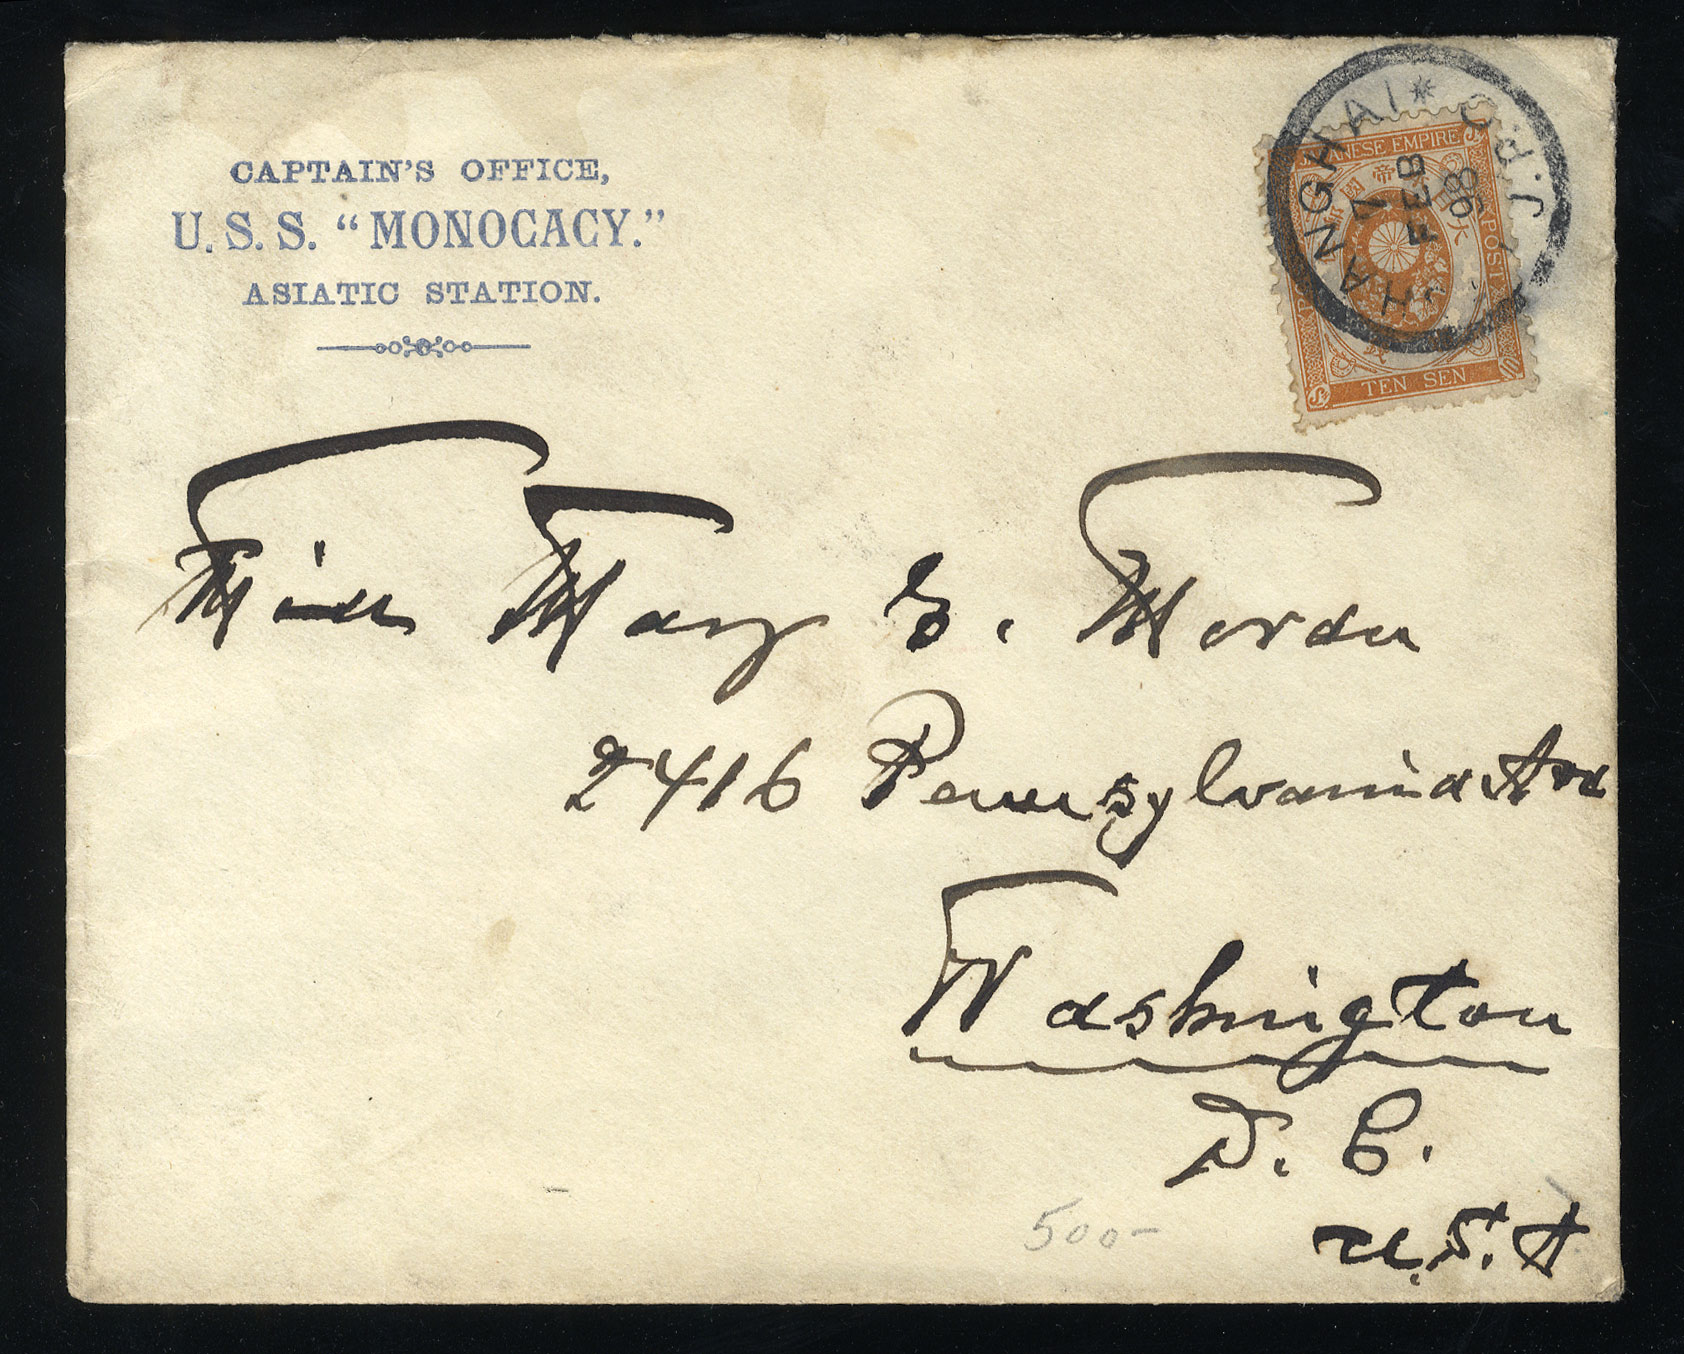 CAPTAIN'S OFFICE,
U.S.S. "MONOCACY."
ASIATIC STATION.
SHANGHAI * I.J.P.O.
7
FEB
98
JAPANESE EMPIRE
POST
大日本帝國
TEN SEN
10
Miss Mary E.
2416 Pennsylvania Ave
Washington
D. C.
U.S.A
500-